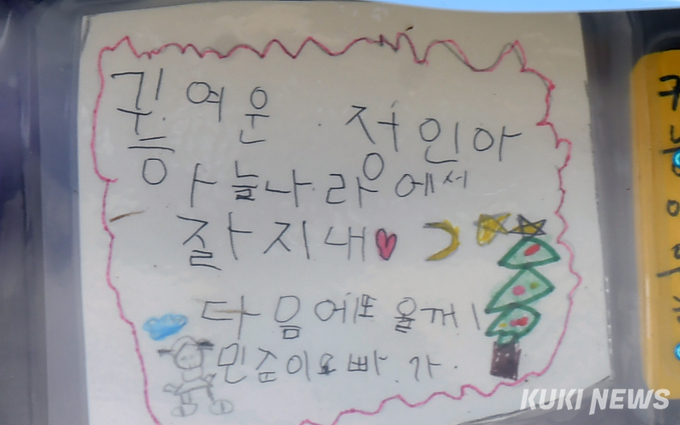 귀여운 정인아
하늘나라에서
잘 지내♥
다음에또 올게!
민준이오빠 가.
KUKI NEWS